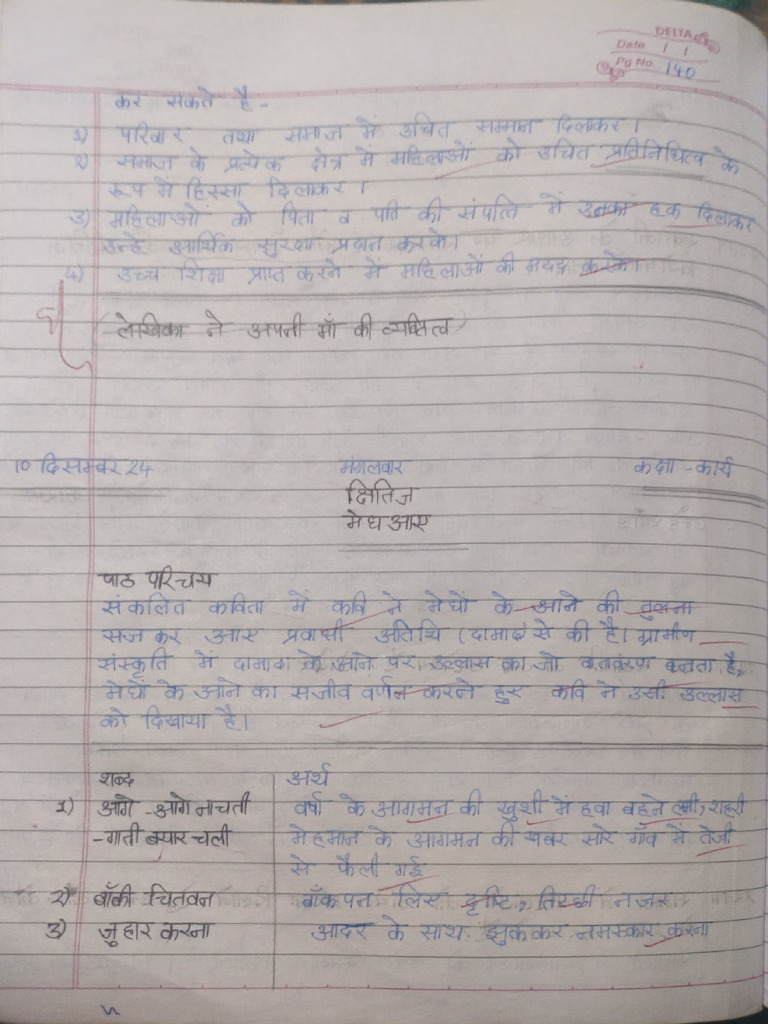 DELTA
Date / /
Pg No. 140
कर सकते है -
1) परिवार तथा समाज में उचित सम्मान दिलाकर।
2) समाज के प्रत्येक क्षेत्र में महिलाओं को उचित प्रतिनिधित्व के
रूप में हिस्सा दिलाकर।
3) महिलाओं को पिता व पति की संपत्ति में उनका हक दिलाकर
उन्हे आर्थिक सुरक्षा प्रदान करके।
4) उच्च शिक्षा प्राप्त करने में महिलाओं की मदद करके।
(लेखिका ने अपनी माँ की व्यक्तित्व)
10 दिसम्बर 24 मंगलवार कक्षा - कार्य
क्षितिज
मेघ आए
पाठ परिचय
संकलित कविता में कवि ने मेघों के आने की तुलना
सज कर आए प्रवासी अतिथि (दामाद) से की है। ग्रामीण
संस्कृति में दामाद के आने पर उल्लास का जो वातावरण बनता है,
मेघों के आने का सजीव वर्णन करते हुए कवि ने उसी उल्लास
को दिखाया है।
शब्द अर्थ
1) आगे - आगे नाचती वर्षा के आगमन की खुशी में हवा बहने लगी, शहरी
- गाती बयार चली मेहमान के आगमन की खबर सारे गाँव में तेजी
से फैली गई
2) बाँकी चितवन बाँकपन लिए दृष्टि, तिरछी नजर
3) जुहार करना आदर के साथ झुककर नमस्कार करना